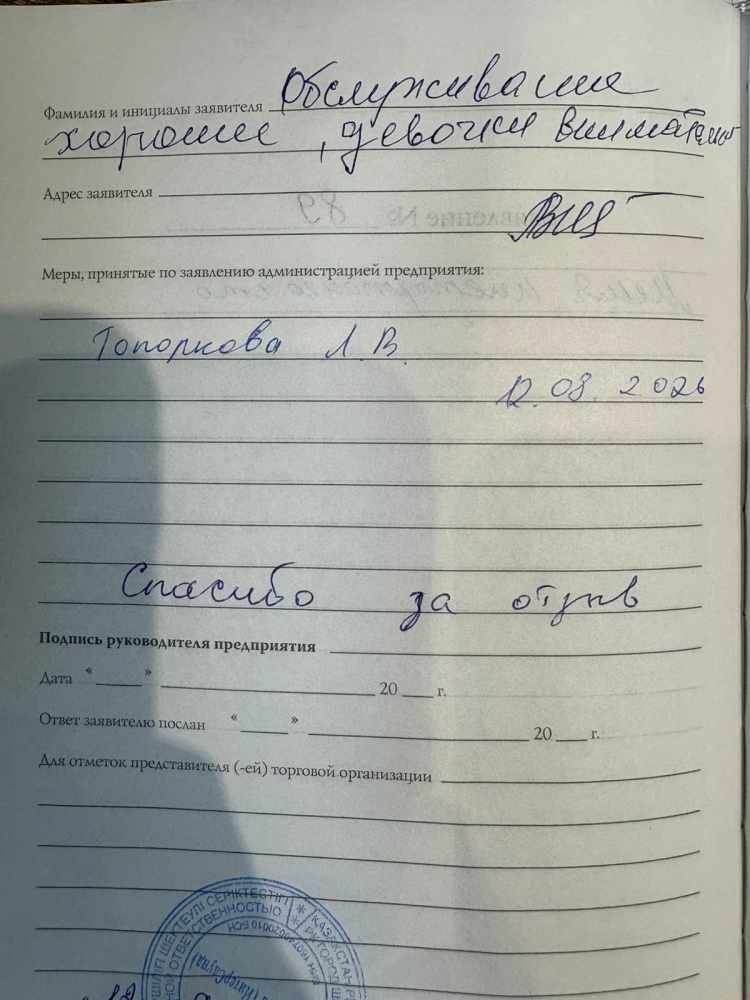 Фамилия и инициалы заявителя Обслуживание
хорошее, девочки внимательные
Адрес заявителя
Меры, принятые по заявлению администрацией предприятия:
Топоркова Л. В.
12. 08. 2026
Спасибо за отзыв
Подпись руководителя предприятия
Дата « » 20 г.
Ответ заявителю послан « » 20 г.
Для отметок представителя (-ей) торговой организации
ШЕКТЕУЛІ СЕРІКТЕСТІГІ ✳ ҚАЗАҚСТАН
ОТВЕТСТВЕННОСТЬЮ